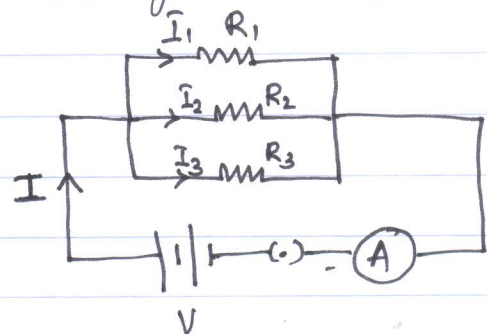 I₁ R₁
I₂ R₂
I₃ R₃
I
A
V